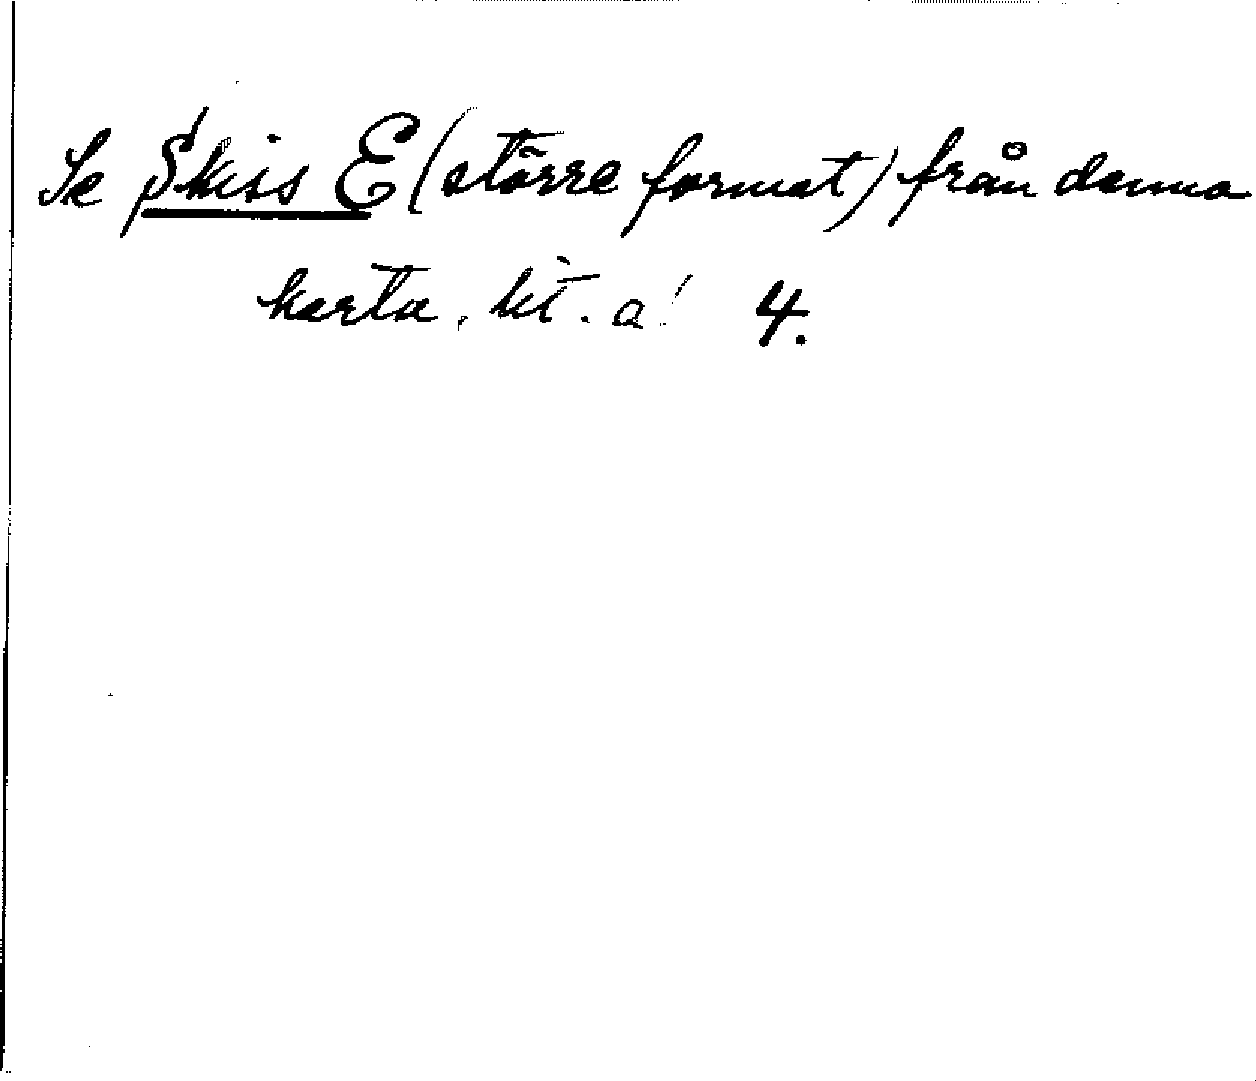 Se Skiss E (större format) från denna
karta, lit. a! 4.